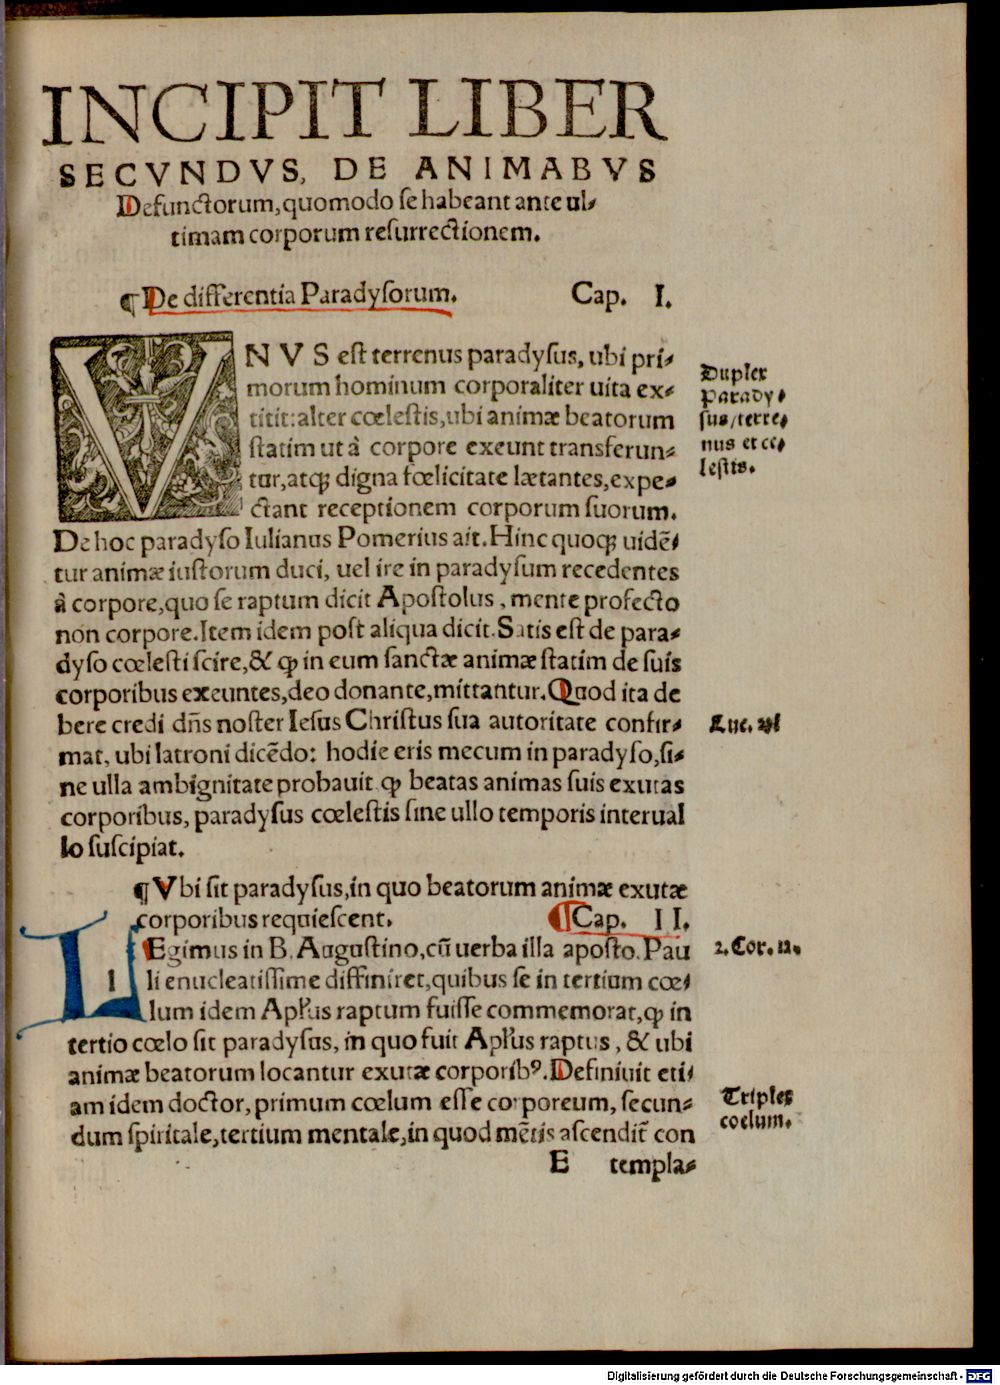 INCIPIT LIBER
SECVNDVS, DE ANIMABVS
Defunctorum,quomodo se habeant ante ul⸗
timam corporum resurrectionem.
¶ De differentia Paradysorum. Cap. I.
VNVS est terrenus paradysus, ubi pri⸗
morum hominum corporaliter uita ex⸗
titit:alter cœlestis,ubi animæ beatorum
statim ut à corpore exeunt transferun⸗
tur,atq; digna fœlicitate lætantes,expe⸗
ctant receptionem corporum suorum.
De hoc paradyso Iulianus Pomerius ait.Hinc quoq; uidē⸗
tur animæ iustorum duci, uel ire in paradysum recedentes
à corpore,quo se raptum dicit Apostolus, mente profecto
non corpore.Item idem post aliqua dicit.Satis est de para⸗
dyso cœlesti scire,& ꝙ in eum sanctæ animæ statim de suis
corporibus exeuntes,deo donante,mittantur.Quod ita de
bere credi dn̄s noster Iesus Christus sua autoritate confir⸗
mat, ubi latroni dicēdo: hodie eris mecum in paradyso,si⸗
ne ulla ambignitate probauit ꝙ beatas animas suis exutas
corporibus, paradysus cœlestis sine ullo temporis interual
lo suscipiat.
¶ Vbi sit paradysus,in quo beatorum animæ exutæ
corporibus requiescent. ¶Cap. II.
LEgimus in B. Augustino,cū uerba illa aposto.Pau
li enucleatissime diffiniret,quibus se in tertium cœ⸗
lum idem Apl'us raptum fuisse commemorat,ꝙ in
tertio cœlo sit paradysus, in quo fuit Apl'us raptus, & ubi
animæ beatorum locantur exutæ corporibꝰ.Definiuit eti⸗
am idem doctor, primum cœlum esse corporeum, secun⸗
dum spiritale,tertium mentale,in quod mētis ascendit̄ con
E templa⸗
Duplex
Parady⸗
sus/terre⸗
nus et ce⸗
lestis.
Luc.
2. Cor. 12.
Triplex
coelum.
Digitalisierung gefördert durch die Deutsche Forschungsgemeinschaft - DFG